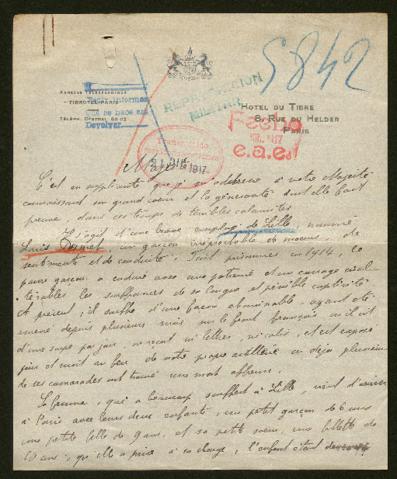 5842
REPRESENTACION
MILITAR
ADRESSE TÉLÉGRAPHIQUE
TIBROTEL-PARIS
TÉLÉPH.
Devolver
HOTEL DU TIBRE
8, RUE DU HELDER
PARIS
Fecho
e.a.e.
1917
C'est en suppliante que je m'adresse à votre Majesté
connaissant son grand coeur et la générosité dont elle fait
preuve, dans ces temps de terribles calamités
Il s'agit d'un brave employé de Lille, nommé
Louis un garçon irréprochable de moeurs, de
sentiments et de conduite. Fait prisonnier en 1914, ce
pauvre garçon a enduré avec une patience et un courage
les souffrances de sa longue et pénible captivité
A présent, il souffre d'une façon abominable, ayant été
emené depuis plusieurs mois sur le front français, où il vit
d'une soupe par jour, ne reçoit ni lettres, ni colis, et est exposé
jour et nuit au feu de notre propre artillerie où déjà plusieurs
de ses camarades ont trouvé une mort affreuse.
La femme, qui a beaucoup souffert à Lille, vient d'arriver
à Paris avec leurs deux enfants, un petit garçon de 6 ans
une petite fille de 9 ans, et sa petite soeur, une fillette de
10 ans, qu'elle a prise à sa charge, l'enfant étant